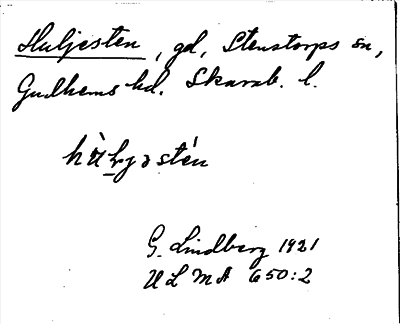 Huljesten, gd, Stenstorps sn,
Gudhems hd. Skarab. l.
G. Lindberg 1921
ULMA 650:2